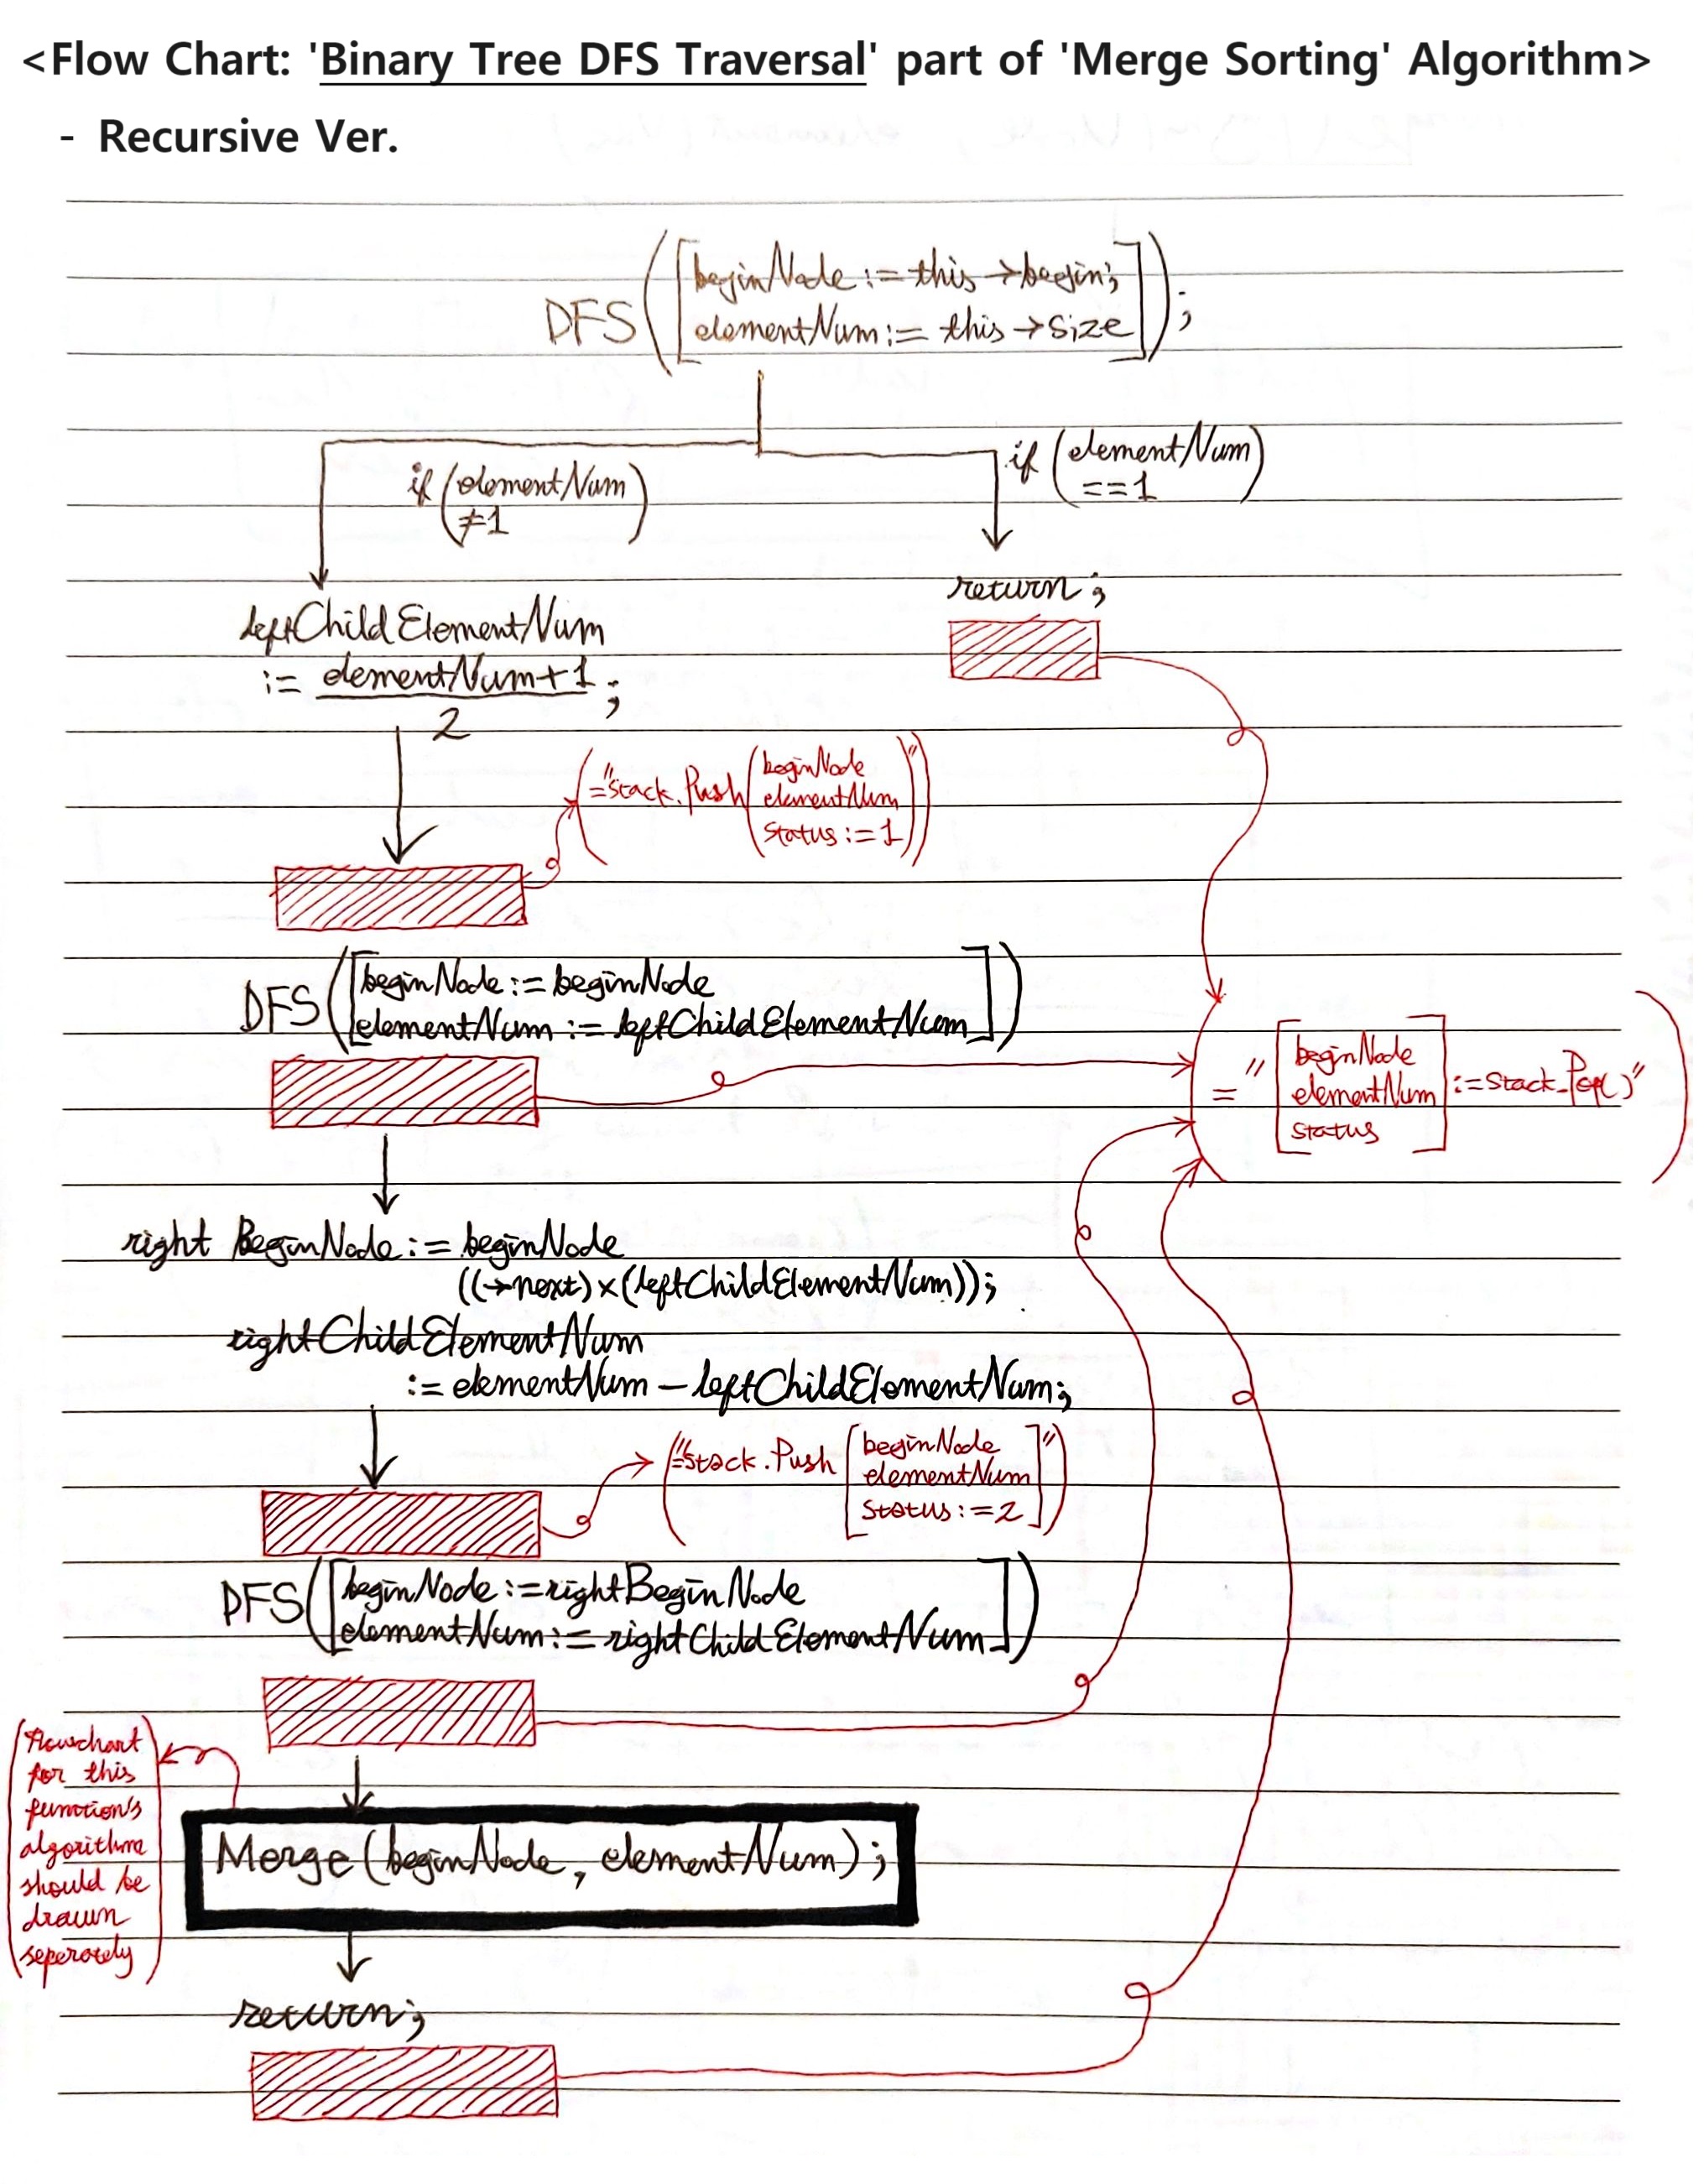 <Flow Chart: 'Binary Tree DFS Traversal' part of 'Merge Sorting' Algorithm>
- Recursive Ver.
DFS([beginNode := this→begin;
elementNum := this→size]);
if (elementNum
==1)
if (elementNum
≠1)
return;
leftChildElementNum
:= elementNum+1 ;
2
(="Stack.Push(beginNode
elementNum
Status:=1)")
DFS([beginNode := beginNode
elementNum := leftChildElementNum])
(= "[beginNode
elementNum
status] :=Stack.Pop()")
right BeginNode := beginNode
((→next)×(leftChildElementNum));
rightChildElementNum
:= elementNum - leftChildElementNum;
(="Stack.Push[beginNode
elementNum
Status:=2]")
DFS([beginNode :=rightBeginNode
elementNum:= rightChildElementNum])
(flowchart
for this
function's
algorithm
should be
drawn
seperately)
Merge(beginNode, elementNum);
return;